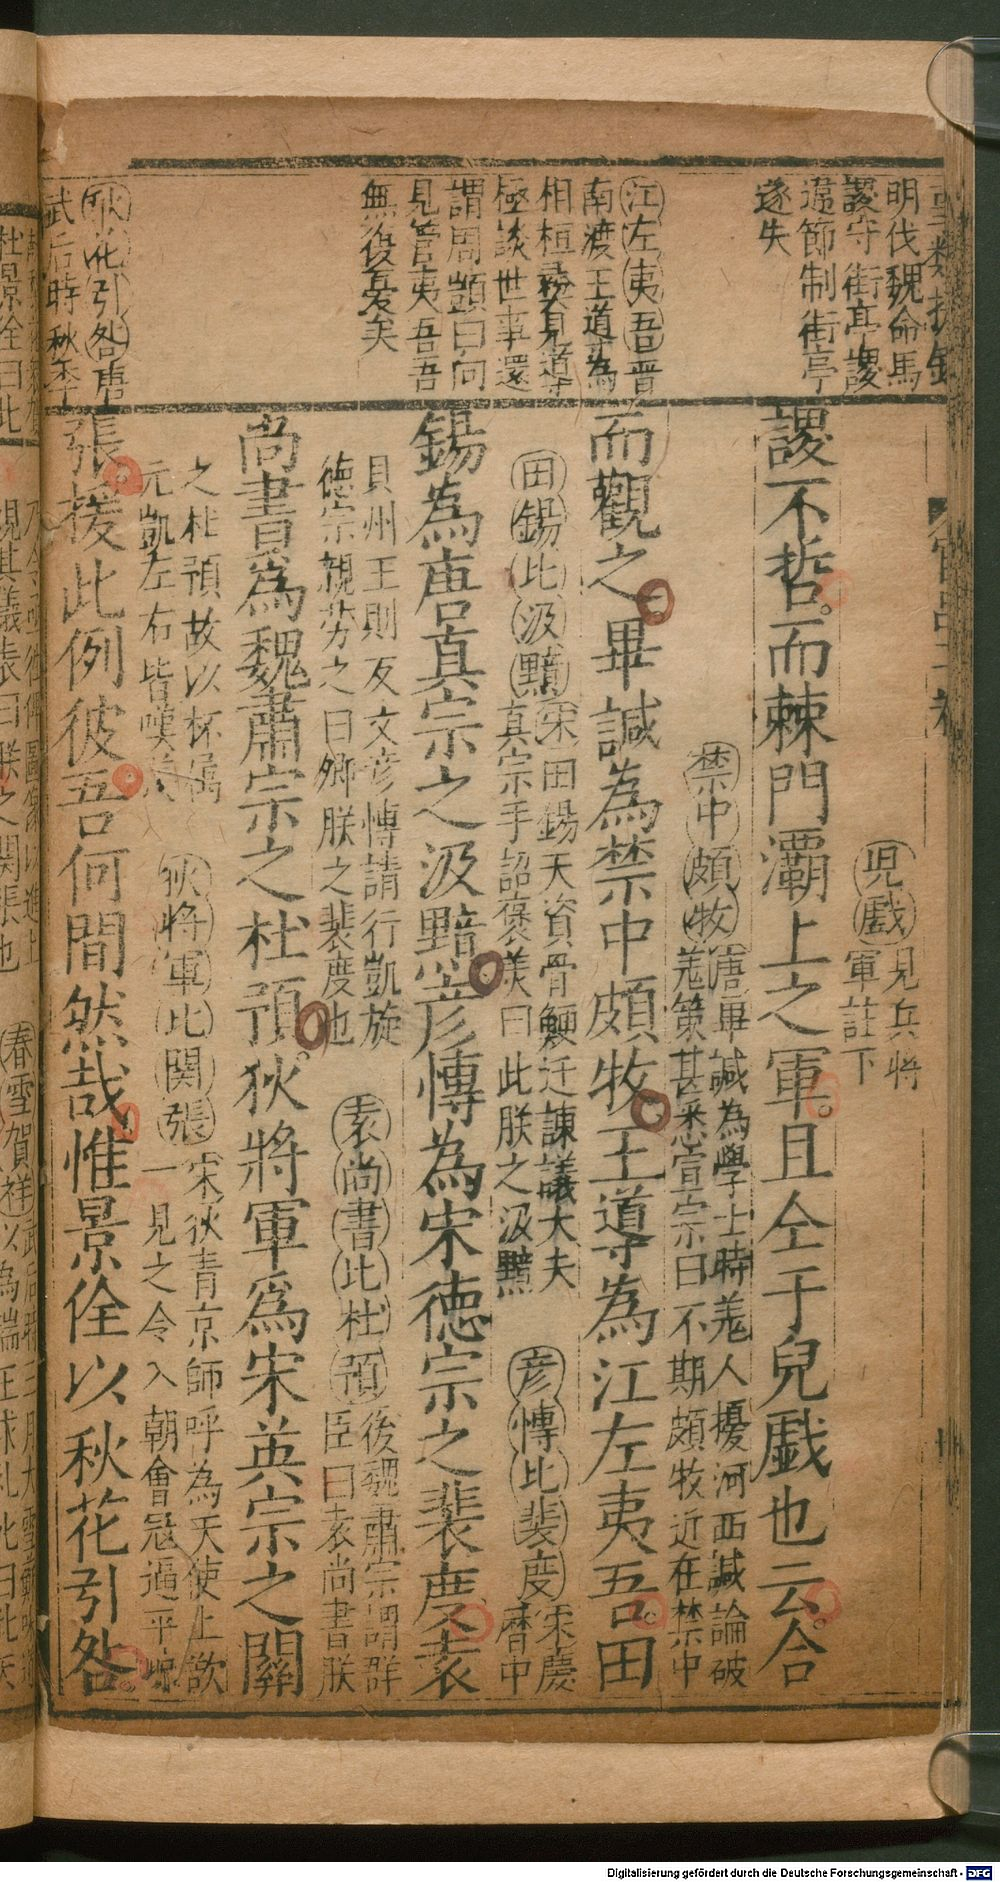 明伐魏命馬
謖守街亭謖
違節制街亭
遂失
江左夷吾晋
南渡王道為
相桓彞見導
極談世事還
謂周顗曰向
見管夷吾吾
無復憂矣
秋花引咎唐
武后時秋季
謖不哲而棘門灞上之軍且仝于兒戯也云合
児戯見兵将
軍註下
而觀之畢諴為禁中頗牧王導為江左夷吾田
禁中頗牧唐畢諴為學士時羗人擾河西諴論破
羗策甚悉宣宗曰不期頗牧近在禁中
錫為唐真宗之汲黯彦愽為宋德宗之裴度袁
田錫比汲黯宋田錫天資骨鯁迁諫議大夫
真宗手詔褒美曰此朕之汲黯
彦愽比裴度宋慶
曆中
貝州王則反文彦愽請行凱旋
德宗親労之曰卿朕之裴度也
尚書為魏肅宗之杜預狄將軍為宋英宗之關
袁尚書比杜預後魏肅宗謂群
臣曰袁尚書朕
之杜預故以杯属
元凱左右皆嘆羨
狄將軍比関張宋狄青京師呼為天使上欲
一見之令入朝會冦逼平凉
張援此例彼吾何間然哉惟景佺以秋花引咎
杜景佺曰此
春雪賀祥
Digitalisierung gefördert durch die Deutsche Forschungsgemeinschaft - DFG